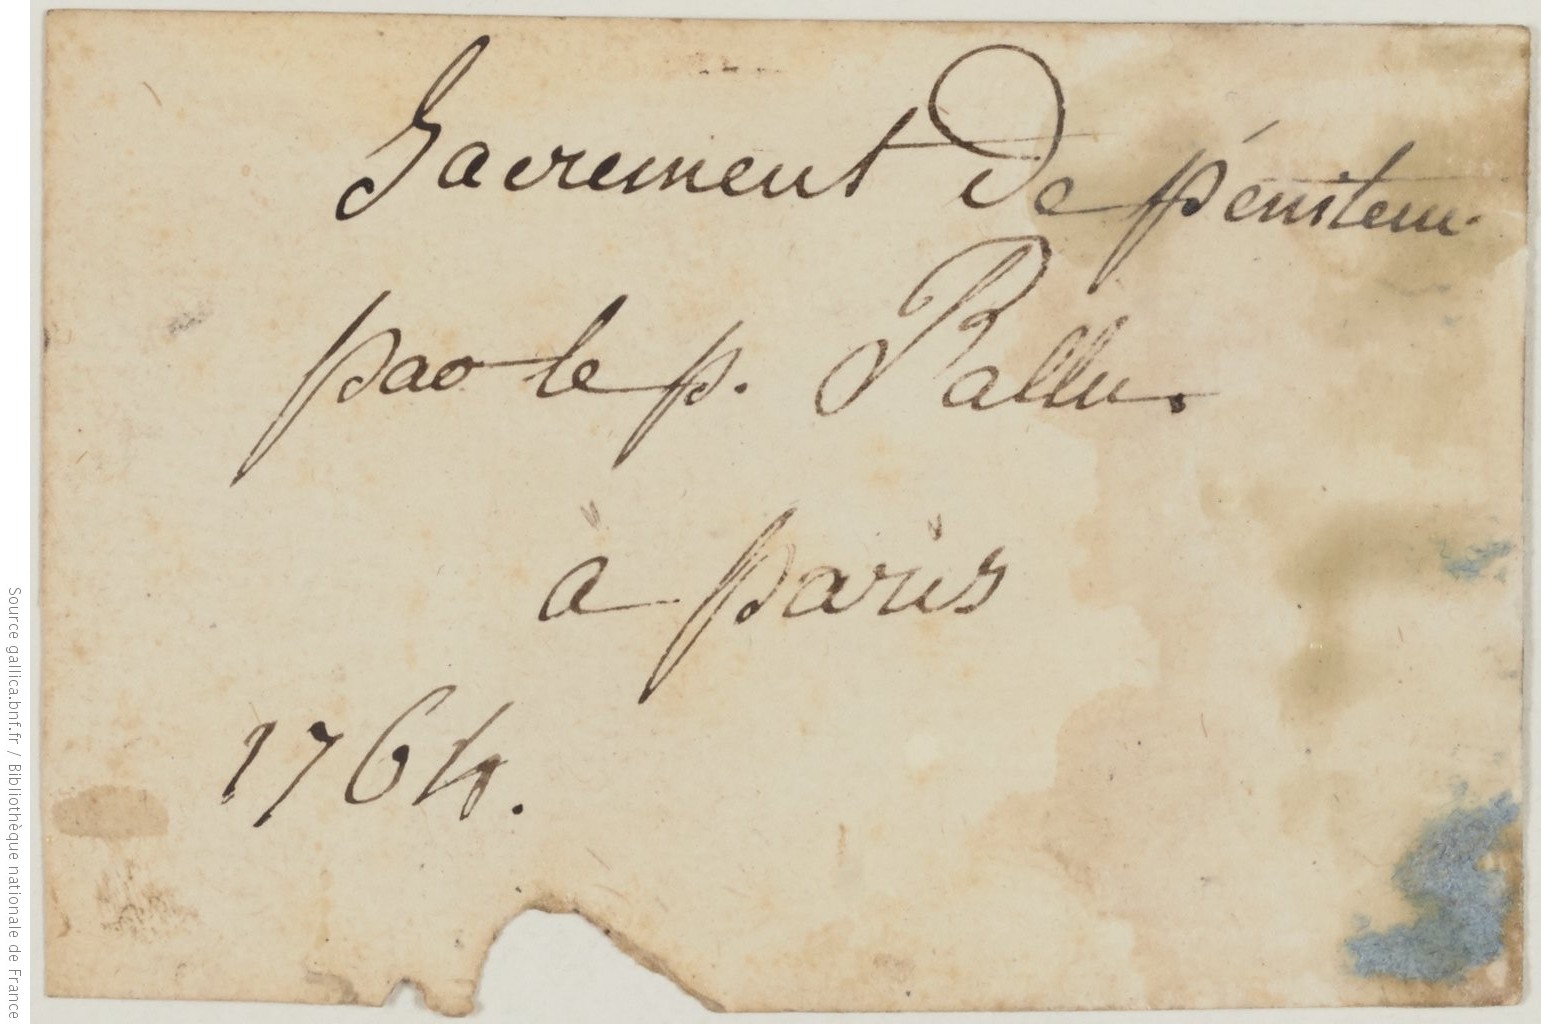 Sacrement De pénitenc.
par le p. Pallu.
à paris
1764.
Source gallica.bnf.fr / Bibliothèque nationale de France